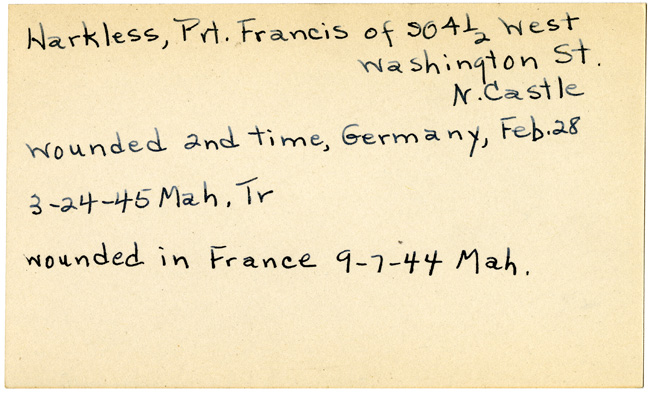 Harkless, Prt. Francis of 904½ West
Washington St.
N. Castle
wounded 2nd time, Germany, Feb. 28
3-24-45 Mah. Tr
wounded in France 9-7-44 Mah.